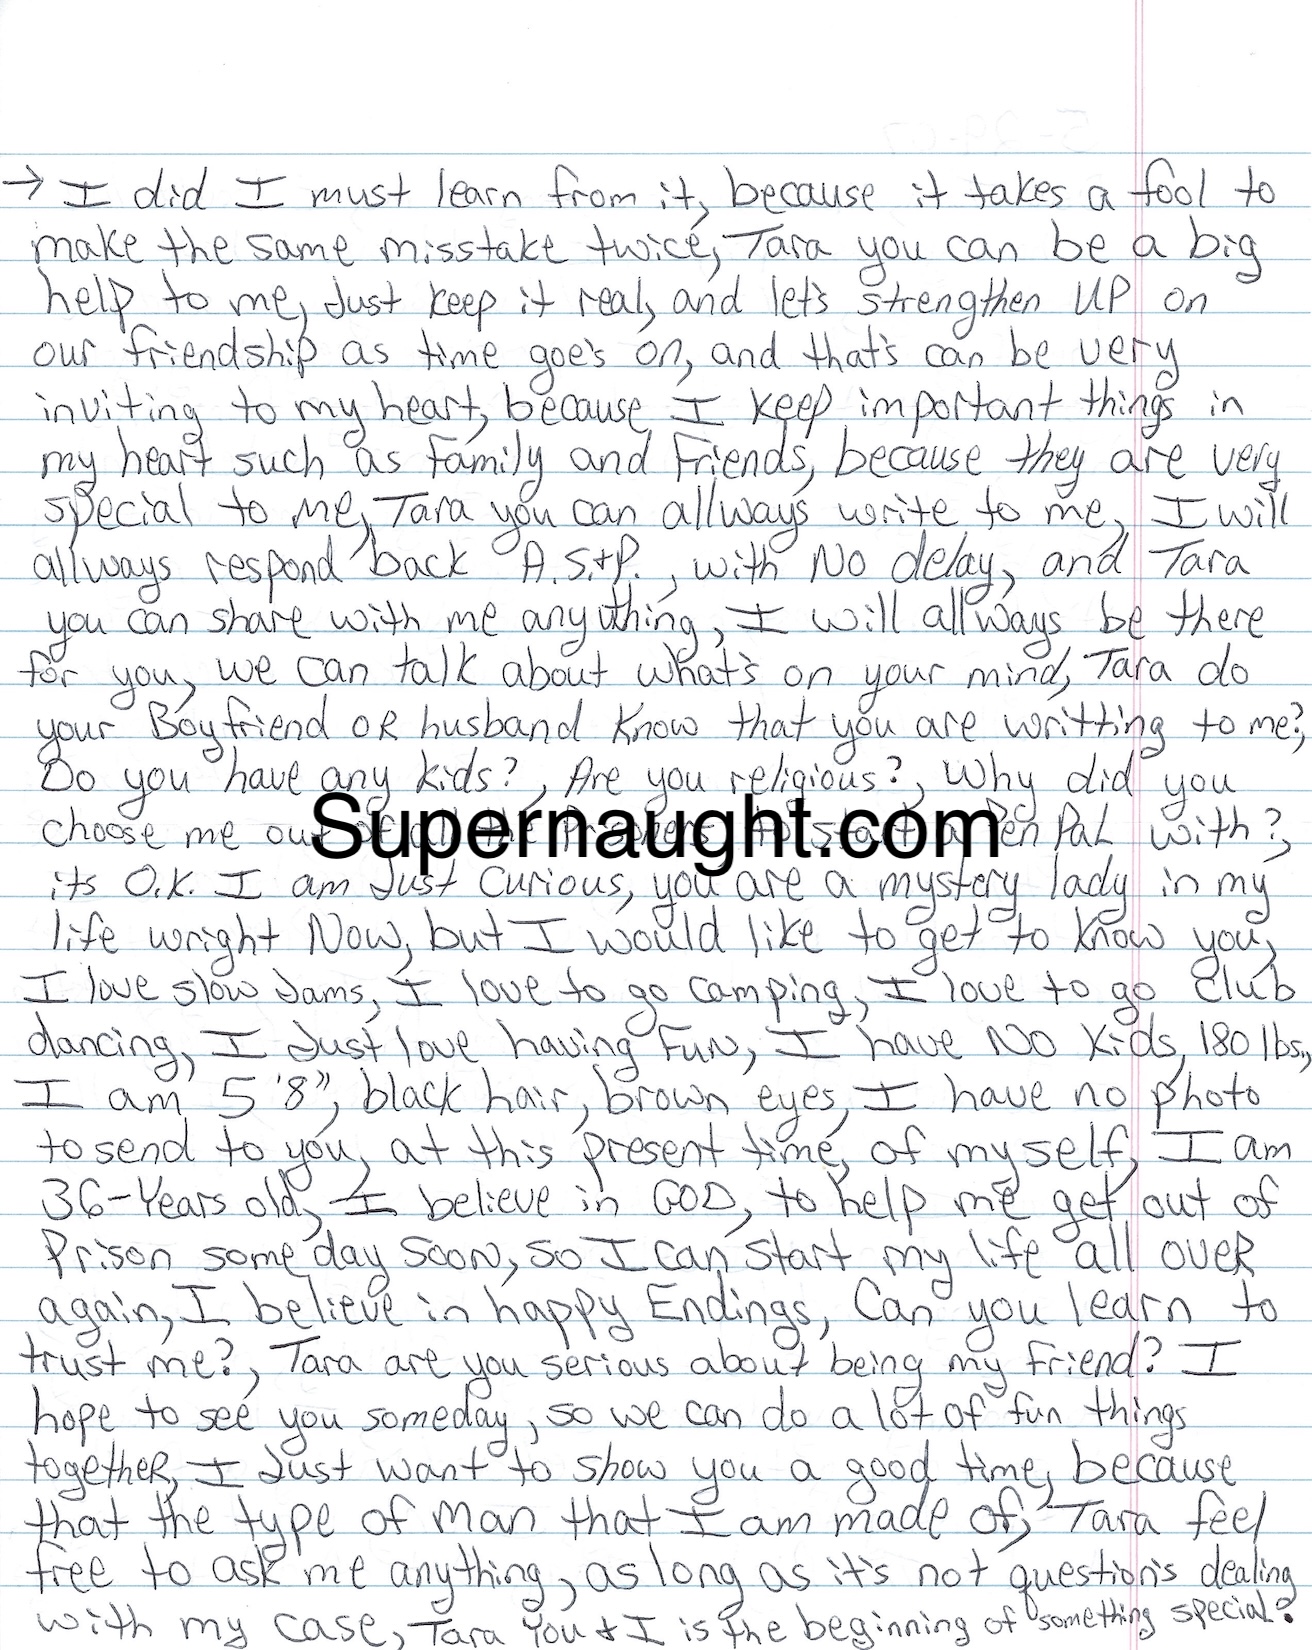 → I did I must learn from it, because it takes a fool to
make the same misstake twice, Tara you can be a big
help to me, Just keep it real, and let's strengthen UP on
our friendship as time goe's on, and that's can be very
inviting to my heart, because I keep important things in
my heart such as family and Friends, because they are very
special to me, Tara you can allways write to me, I will
allways respond back A.S.+P., with No delay, and Tara
you can share with me any thing, I will allways be there
for you, we can talk about what's on your mind, Tara do
your Boyfriend OR husband know that you are writting to me?,
Do you have any kids?, Are you religious?, Why did you
choose me out of all the Prisoners, to start a Pen PaL with?,
Supernaught.com
its O.K. I am Just curious, you are a mystery lady in my
life wright Now, but I would like to get to know you,
I love slow Jams, I love to go camping, I love to go club
dancing, I Just love having Fun, I have No Kids, 180 lbs.,
I am 5'8", black hair, brown eyes, I have no photo
to send to you, at this present time, of myself, I am
36-Years old, I believe in GOD, to help me get out of
Prison some day soon, so I can start my life all OVER
again, I believe in happy Endings, Can you learn to
trust me?, Tara are you serious about being my friend? I
hope to see you someday, so we can do a lot of fun things
together, I Just want to show you a good time, because
that the type of man that I am made of, Tara feel
free to ask me anything, as long as it's not question's dealing
with my case, Tara You + I is the beginning of something special?